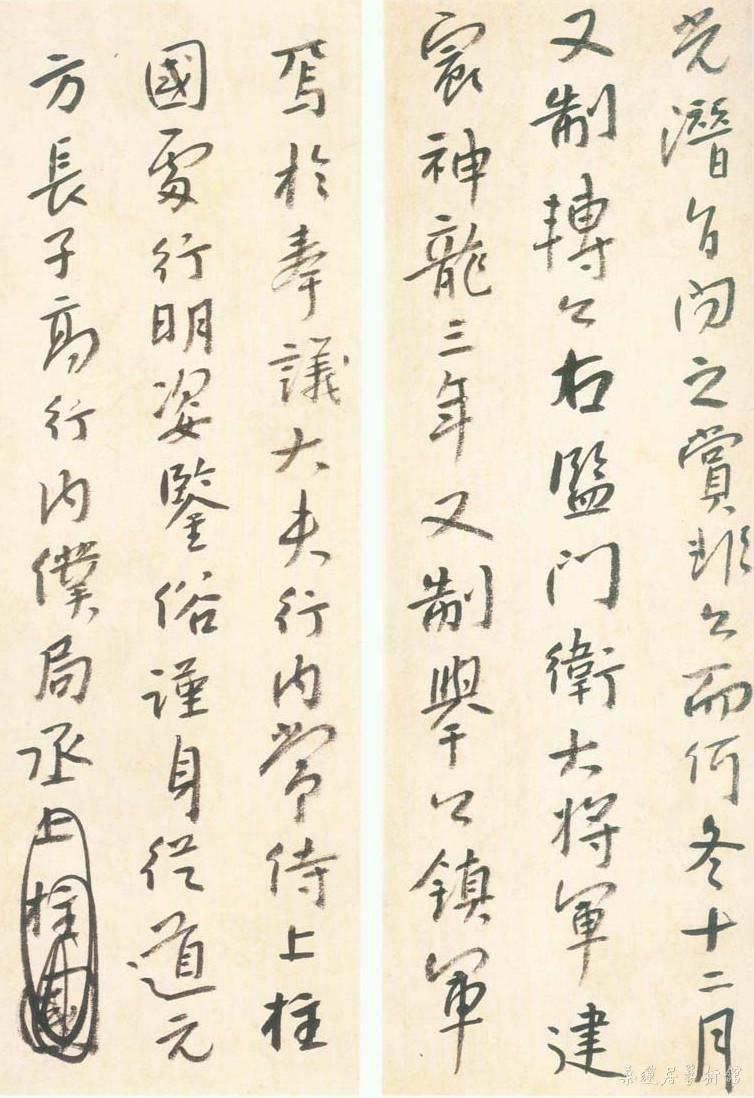 光潛問之賞非公而何冬十二月
又制轉公右監門衛大將軍建
神龍三年又制舉公鎮軍
焉於奉議大夫行內常侍上柱
國處行明姿鑒俗謹身從道元
方長子高行內僕局丞上柱國
桑蓮居藝術館